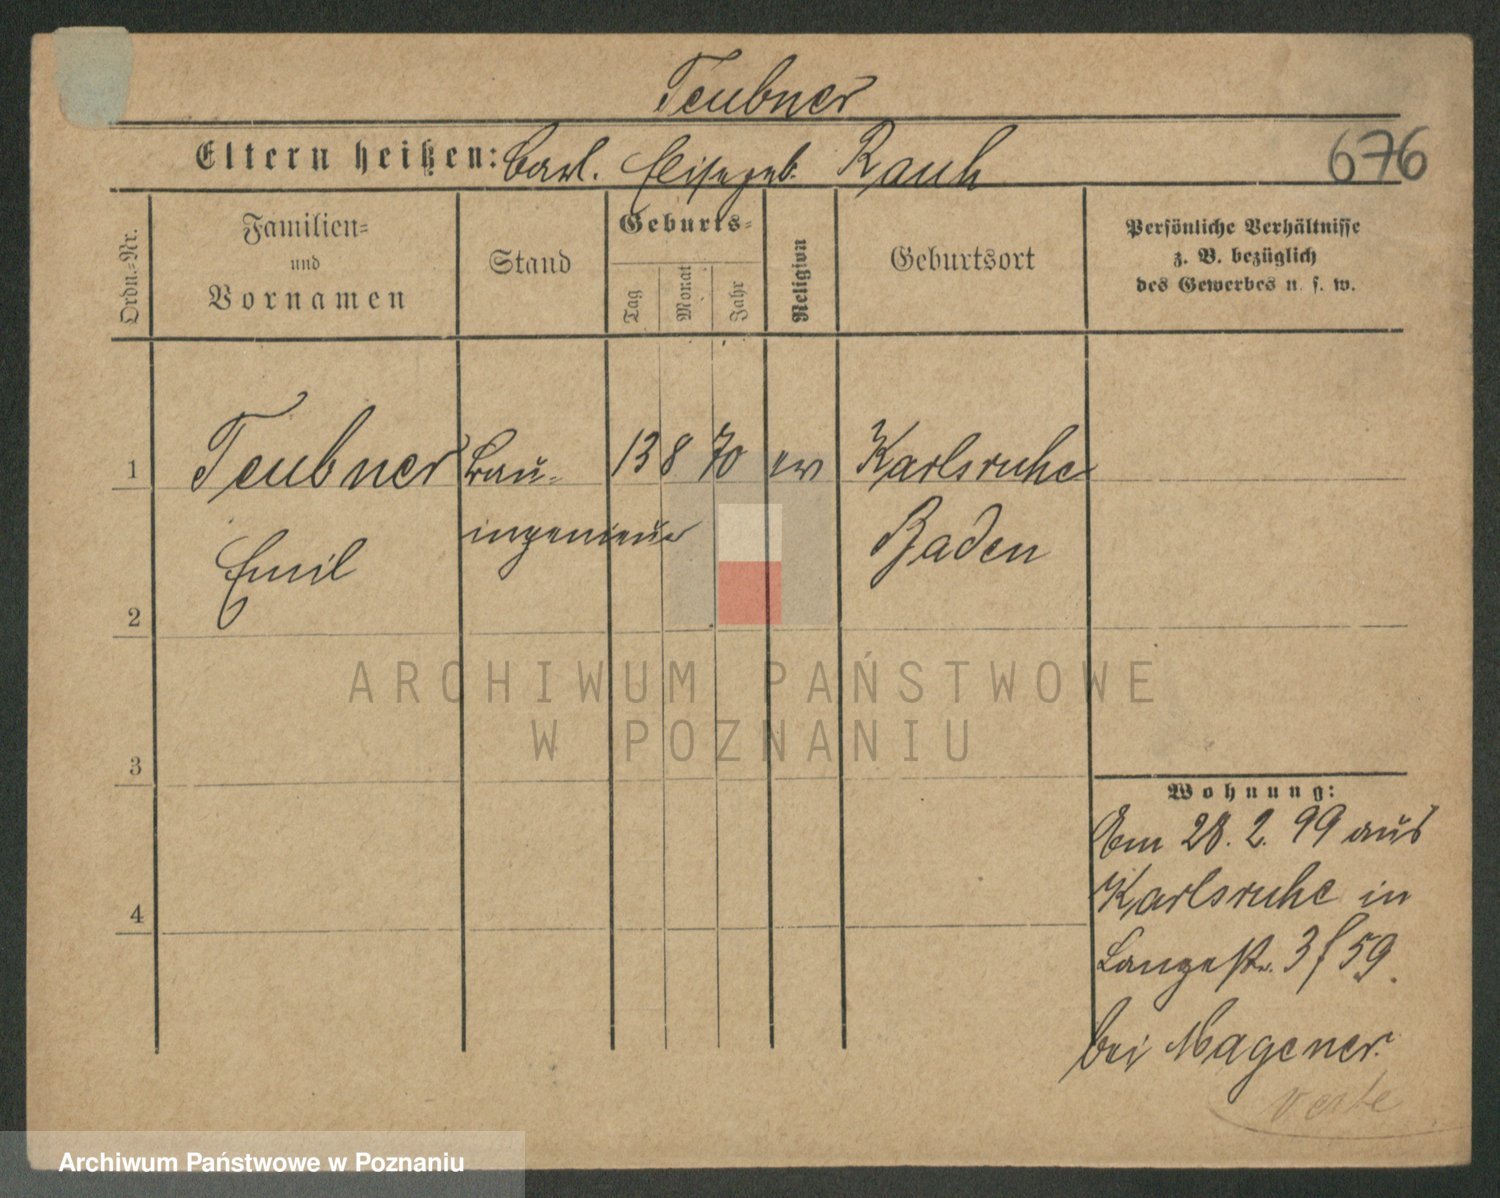 Teubner
Eltern heißen: Carl. Elise geb. Rauh
676
Ordn.-Nr.
Familien- und Vornamen
Stand
Geburts-
Tag
Monat
Jahr
Religion
Geburtsort
Persönliche Verhältnisse
z. B. bezüglich
des Gewerbes u. s. w.
1 Teubner Bau- 13 8 70 ev Karlsruhe
ingenieur Baden
Emil
2
3
4
Wohnung:
Am 28. 2. 99 aus
Karlsruhe in
Langestr. 3 f 59.
bei Wagener.
verte
ARCHIWUM PAŃSTWOWE
W POZNANIU
Archiwum Państwowe w Poznaniu